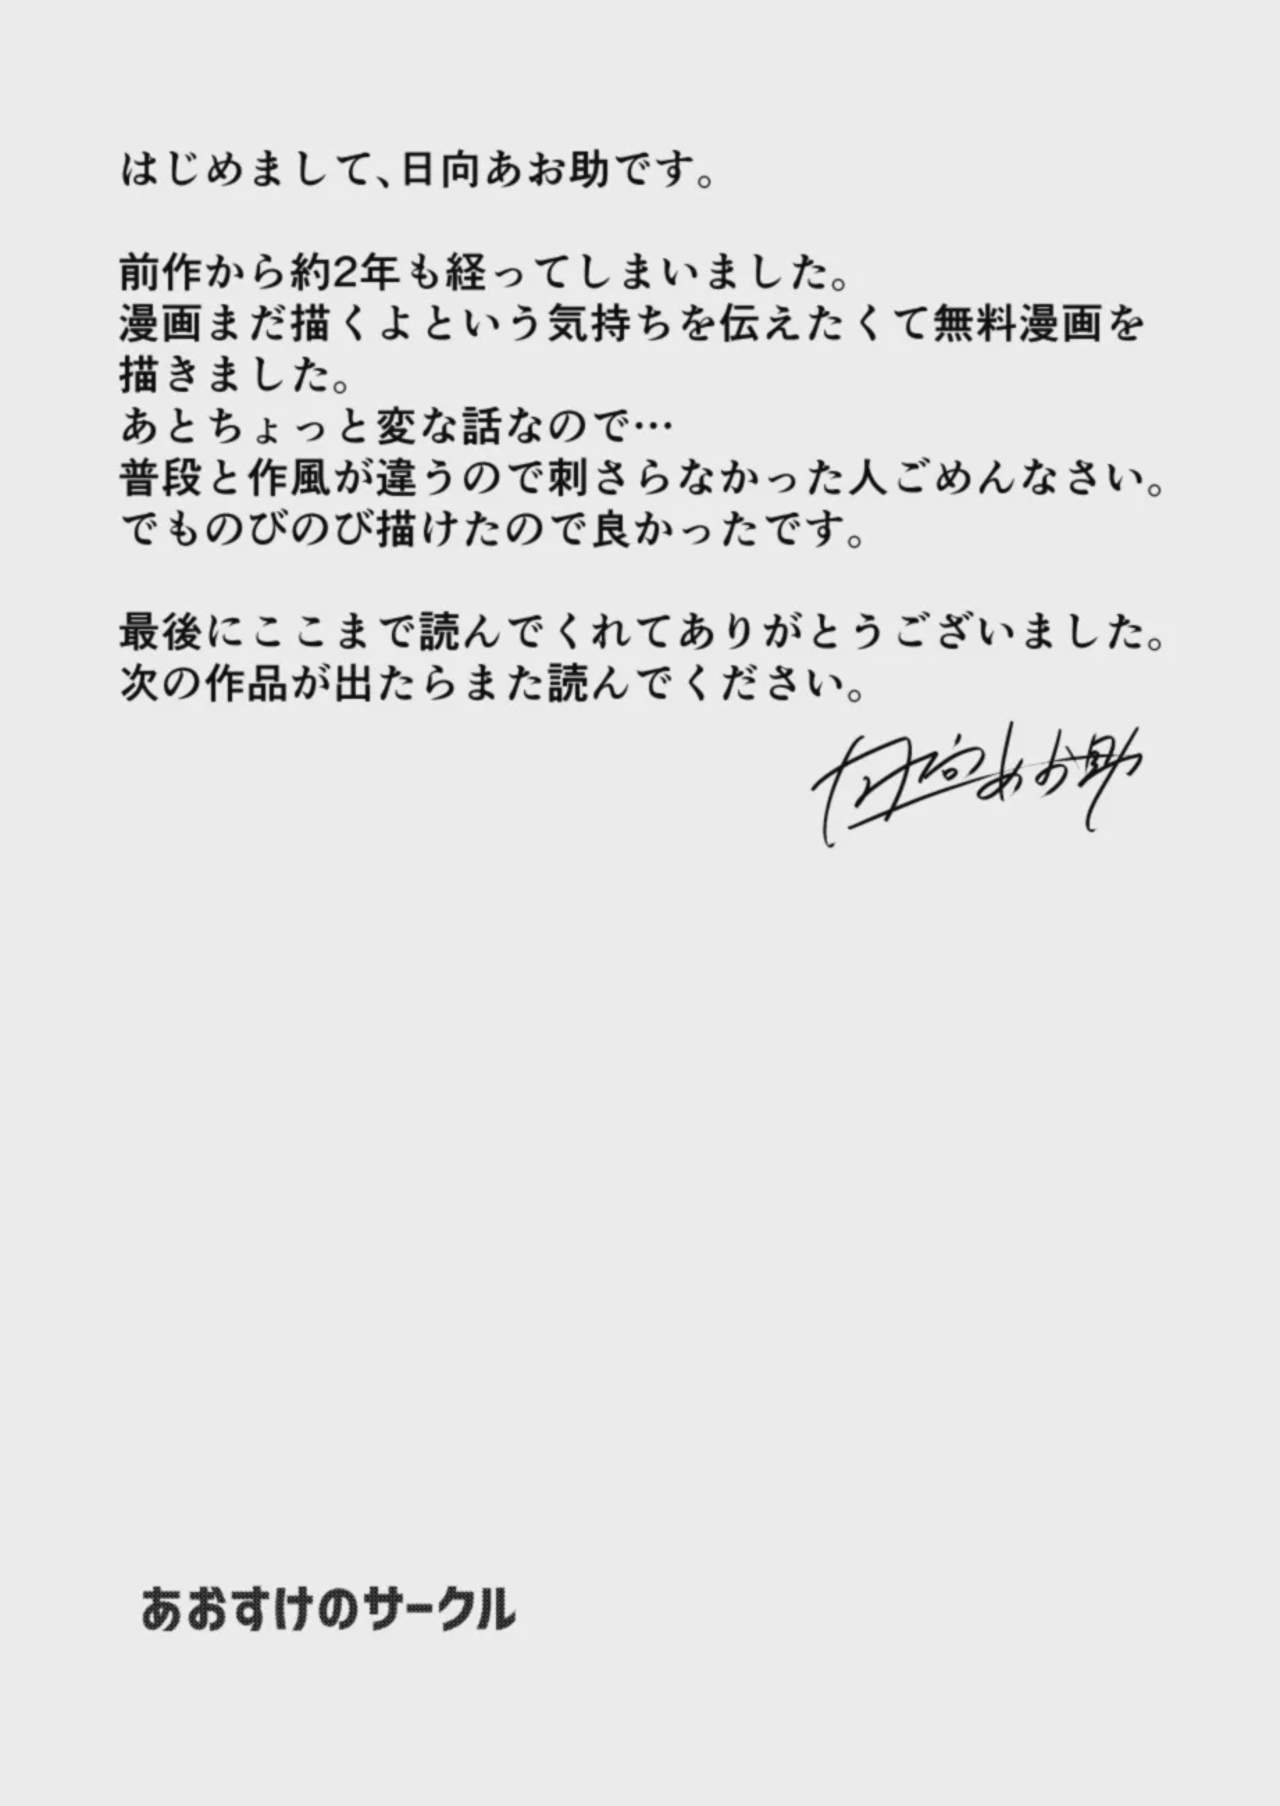 はじめまして、日向あお助です。
前作から約2年も経ってしまいました。
漫画まだ描くよという気持ちを伝えたくて無料漫画を
描きました。
あとちょっと変な話なので…
普段と作風が違うので刺さらなかった人ごめんなさい。
でものびのび描けたので良かったです。
最後にここまで読んでくれてありがとうございました。
次の作品が出たらまた読んでください。
日向あお助
あおすけのサークル